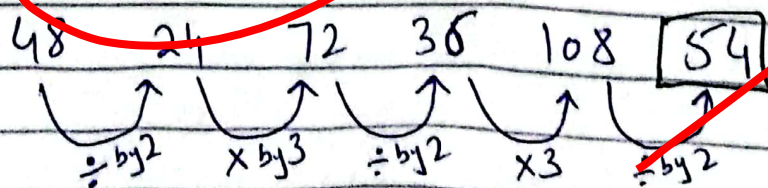 48 24 72 36 108 54
÷ by 2 × by 3 ÷ by 2 × 3 ÷ by 2